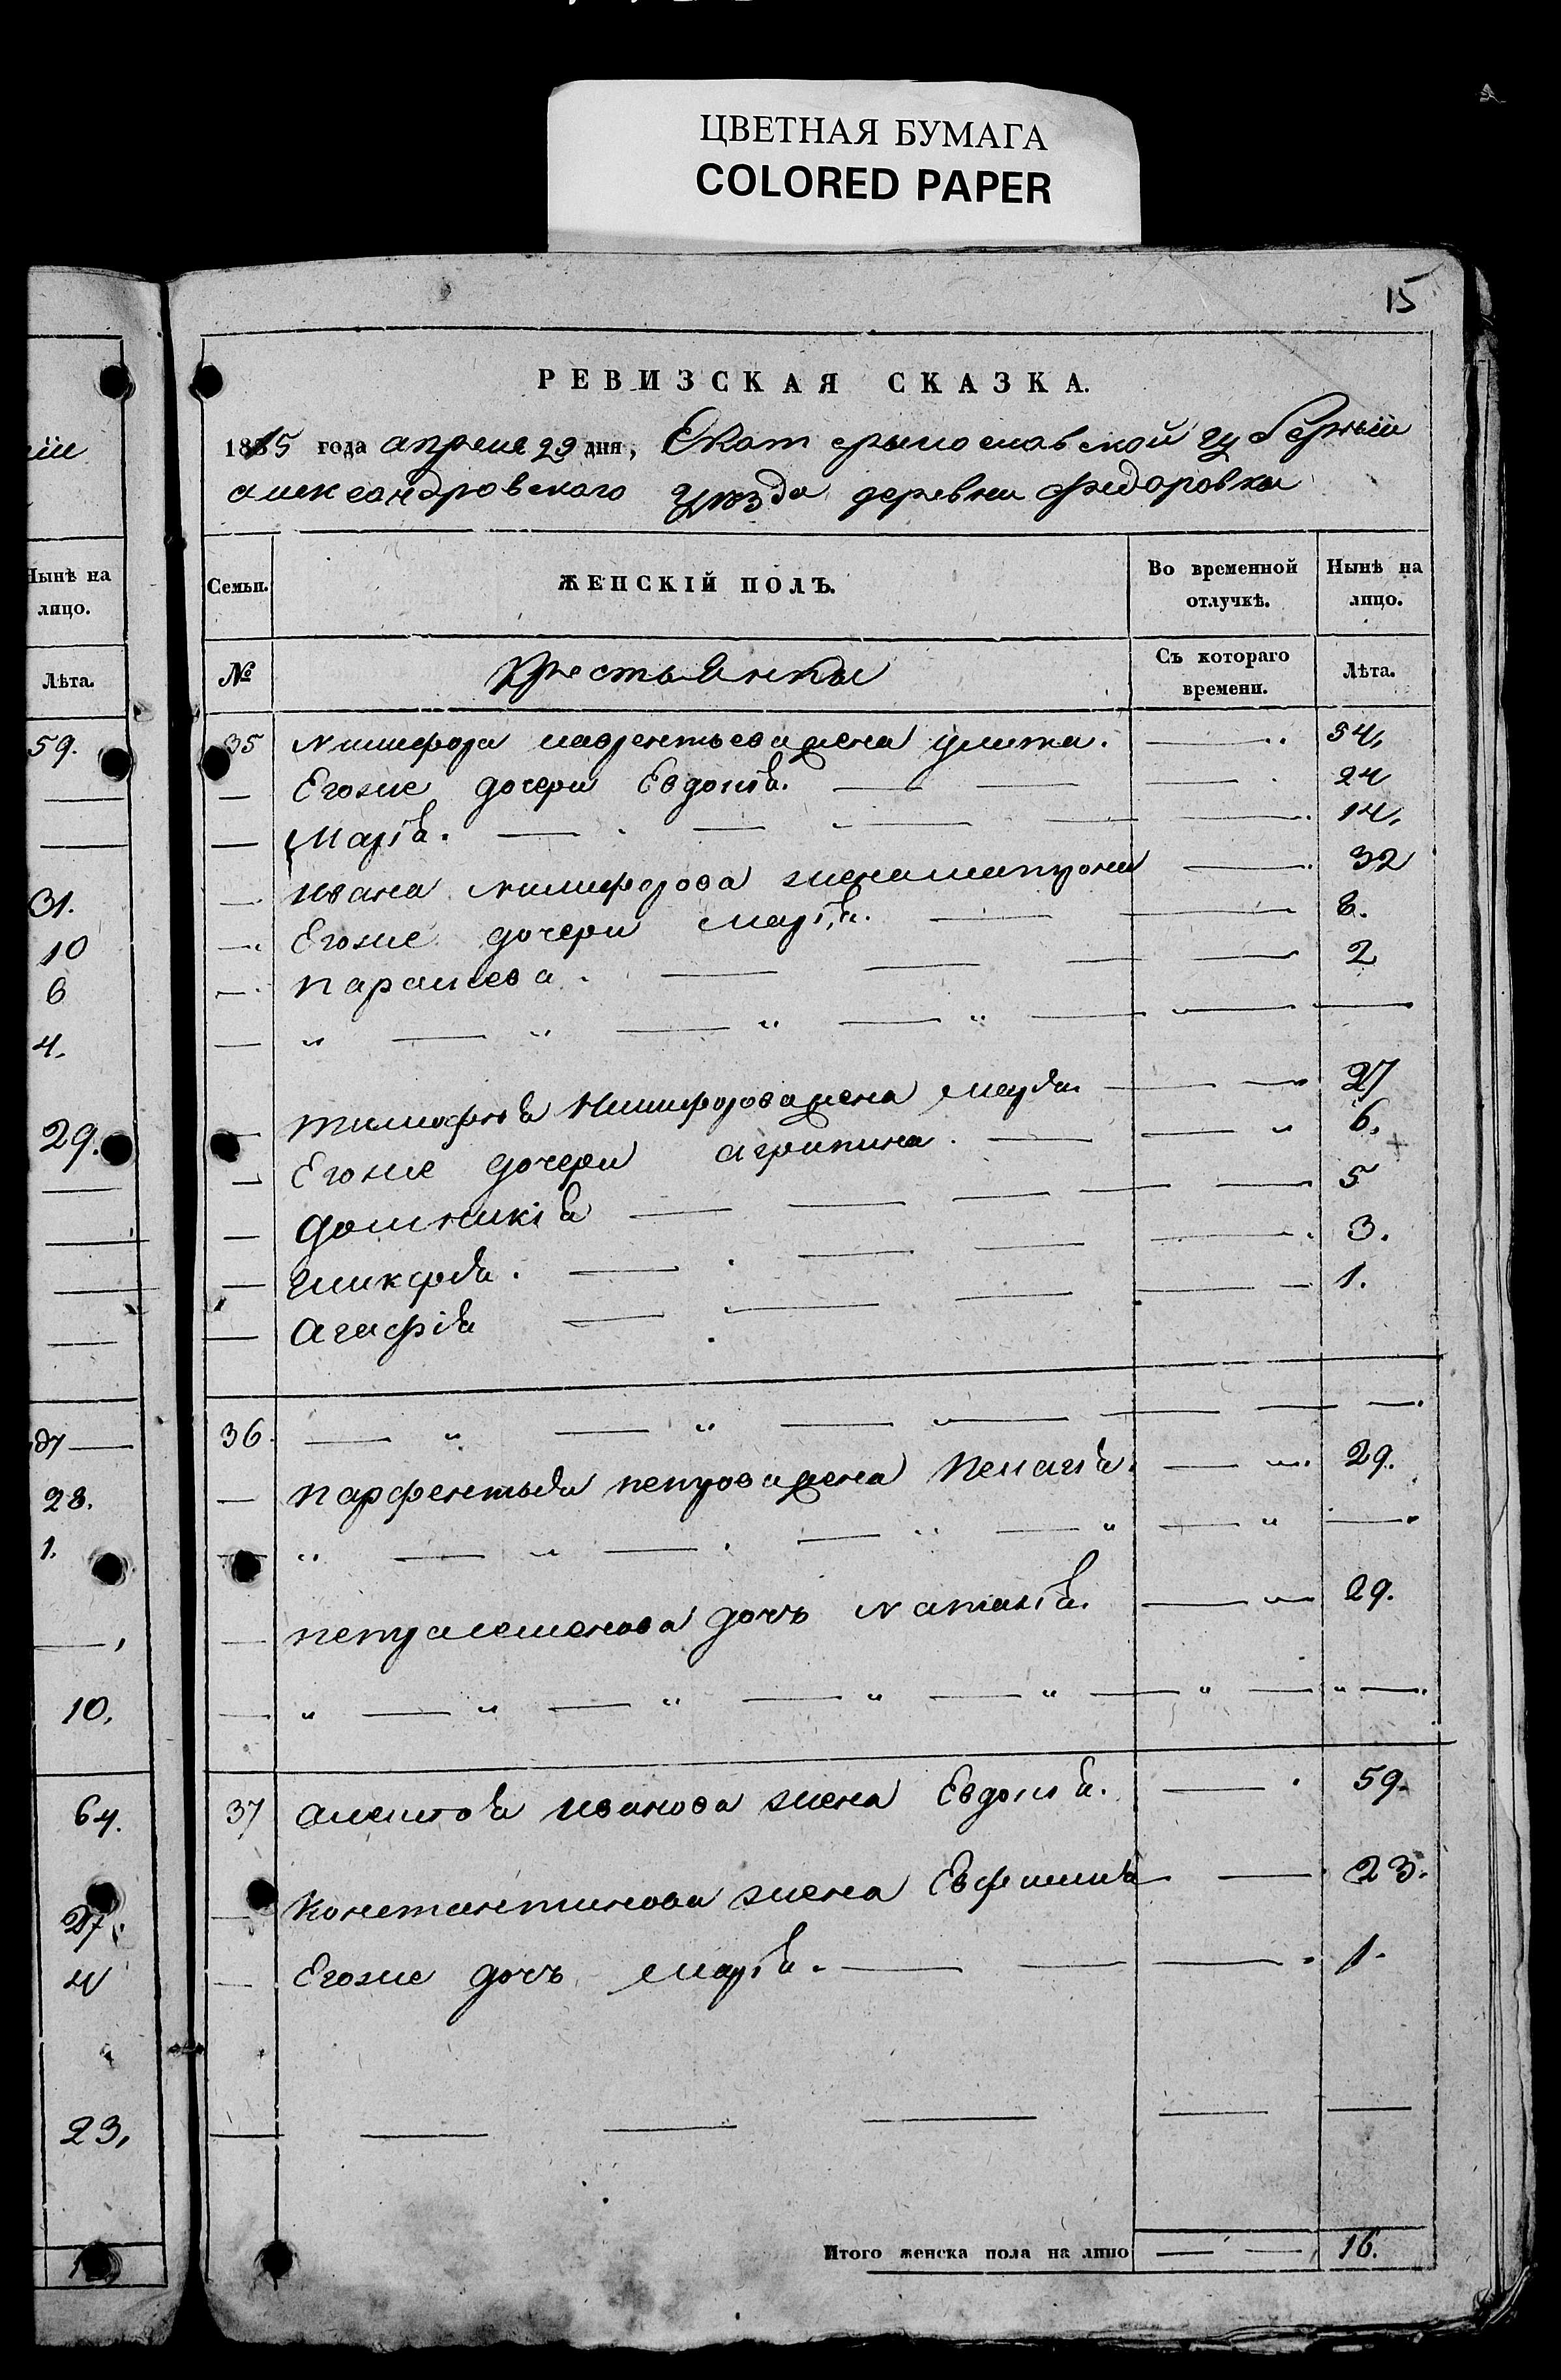 ЦВЕТНАЯ БУМАГА
COLORED PAPER
15
РЕВИЗСКАЯ СКАЗКА.
1835 года апреля 29 дня, Екатерынославской губерній
александровского уѣзда деревни Федоровки
Нынѣ на лицо.
Лѣта.
59.
31.
10
6
4.
29.
28.
1.
10.
64.
27.
4
23.
Семьи. ЖЕНСКІЙ ПОЛЪ. Во временной отлучкѣ. Нынѣ на лицо.
№ Крестьянки Съ котораго времени. Лѣта.
35 Никифора лаврентьева жена улита. 54.
Егоже дочери Евдокія. 24
Марія. 14.
Ивана Никифорова жена матрона 32
Егоже дочери Марія. 8.
Параскева. 2
Тимофѣя Никифорова жена марѳа 27
Егоже дочери агрипина. 6.
Домникія 5
Гликерія. 3.
Агафія 1.
36.
Парфентья петрова жена Пелагія. 29.
петра семенова дочъ Наталія. 29.
37 Алексѣя Иванова жена Евдокія. 59.
Константинова жена Евфимія 23.
Егоже дочъ Марія. 1.
Итого женска пола на лицо 16.